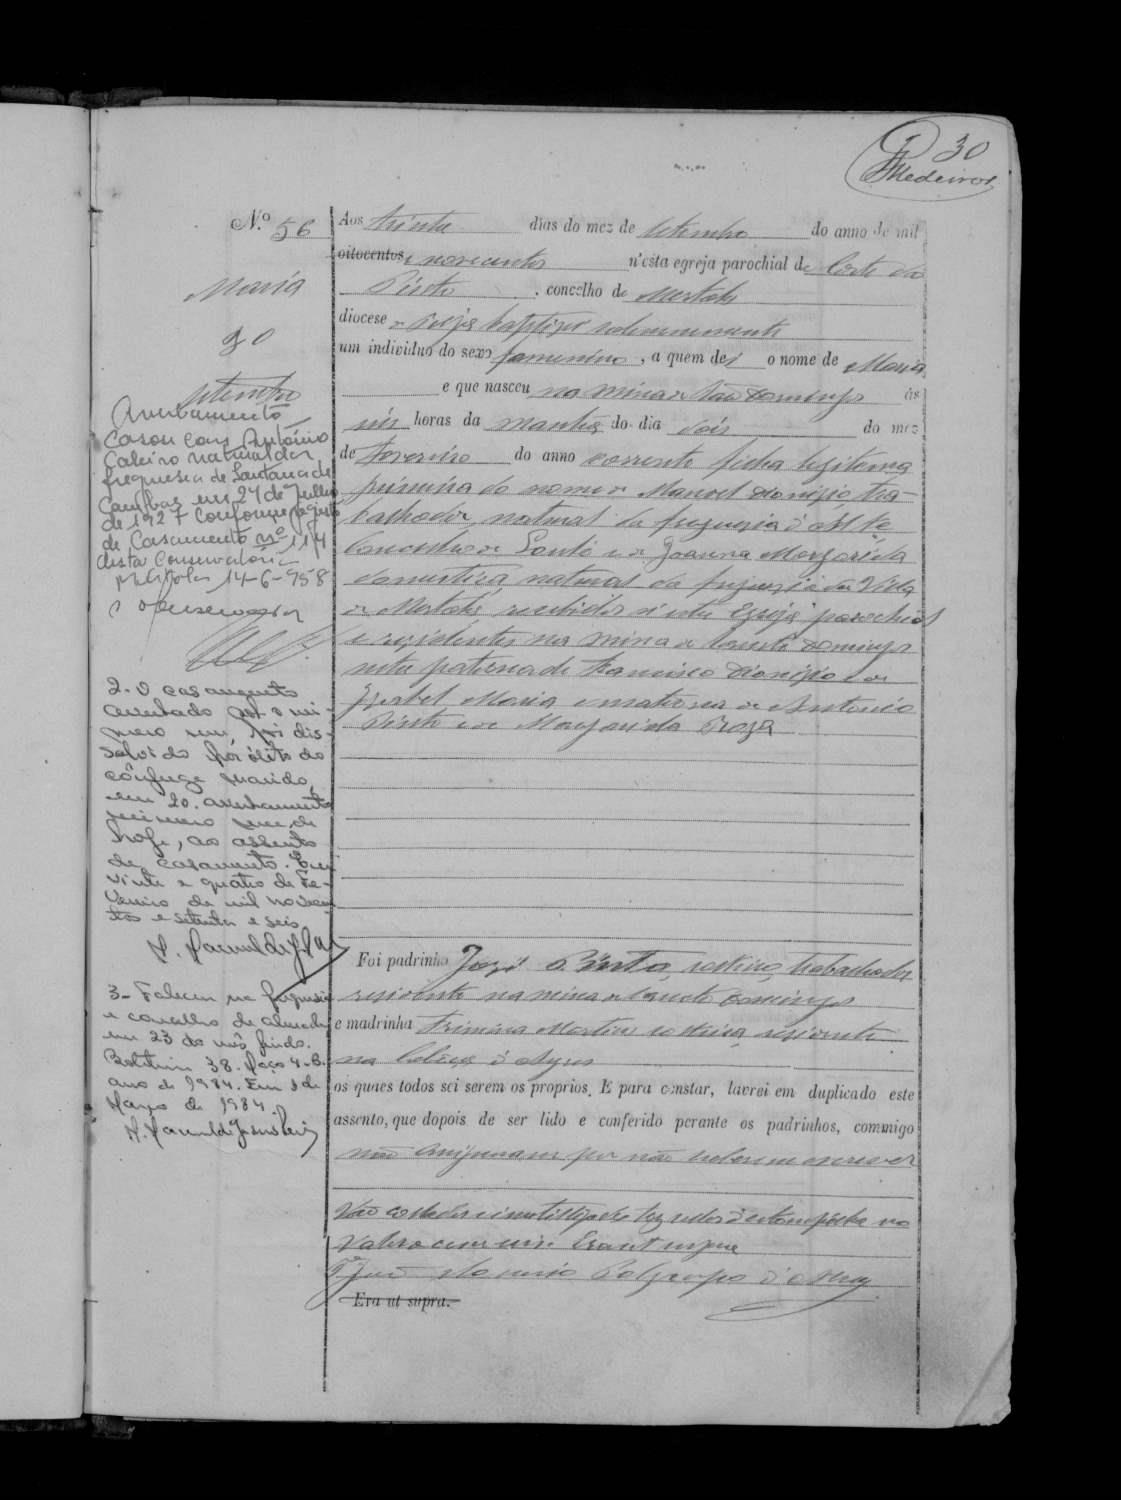 30
Medeiros
N.º 56
Maria
30
Setembro
Averbamento
Casou com António
Caleiro natural da
freguesia de Santana de
Cambas em 24 de Julho
de 1927 conforme registo
de Casamento nº 114
desta Conservatória
14-6-958
O Conservador
2-O casamento
averbado sob o nú-
mero um, foi dis-
solvido por óbito do
cônjuge marido,
em 20. averbamento
número um, de
hoje, ao assento
de casamento. Em
vinte e quatro de Fe-
vereiro de mil novecen-
tos e setenta e seis
3- Faleceu na freguesia
e concelho de Almada
em 23 do mês findo.
Boletim 38. Maço 4-B.
ano de 1984. Em 1 de
Março de 1984.
Aos trinta dias do mez de Setembro do anno de mil
oitocentos e novecentos n'esta egreja parochial de Corte do
Pinto, concelho de Mertola
diocese de Beja baptizei solemnemente
um individuo do sexo femenino, a quem dei o nome de Maria
e que nasceu na mina de São Domingos ás
seis horas da manhã do dia dois do mez
de Fevereiro do anno corrente filha legitima
primeira do nome de Manoel Dionizio, tra-
balhador, natural da freguezia d'Alte
Concelho de Loulé e de Joanna Margarida
domestica, natural da freguezia da Villa
de Mertola, recebidos n'esta Egreja parochial
e rezidentes na mina de Sancto Domingos
neta paterna de Francisco Dionizio e de
Izabel Maria e materna de Antonio
Pinto e de Margarida Roza
Foi padrinho José Pinto, solteiro, trabalhador
residente na mina de Sancto Domingos
e madrinha Firmina Martins solteira, residente
na
os quaes todos sei serem os proprios. E para constar, lavrei em duplicado este
assento, que dopois de ser lido e conferido perante os padrinhos, commigo
não assignaram por não saberem escrever
Era ut supra
Era ut supra.